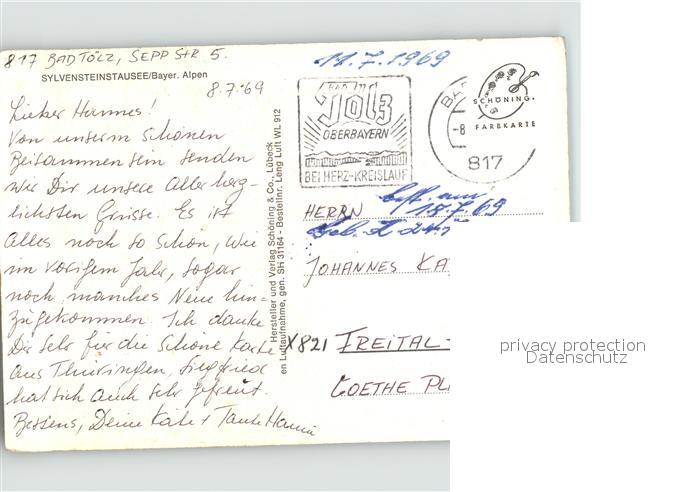 817 BAD TÖLZ, SEPP STR 5.
SYLVENSTEINSTAUSEE/Bayer. Alpen
8.7.69
Lieber Hannes!
Von unserm schönen
Beisammensein senden
wir Dir unsere Aller herz-
lichsten Grüsse. Es ist
Alles noch so schön, wie
im vorigem Jahr, sogar
noch manches Neue hin-
zugekommen. Ich danke
Dir sehr für die schöne Karte
aus Thüringen, Siegfried
hat sich auch sehr gefreut.
Bestens, Deine Käte + Tante Hanni
Hersteller und Verlag Schöning & Co., Lübeck
en Luftaufnahme, gen. SH 31164 - Bestellnr. Leng Luft WL 912
11.7.1969
BAD
Tölz
OBERBAYERN
BEI HERZ-KREISLAUF
BA
-8
817
SCHÖNING
FARBKARTE
am
15.7.69
HERRN
JOHANNES KA
X821 FREITAL-
GOETHE PL
privacy protection
Datenschutz